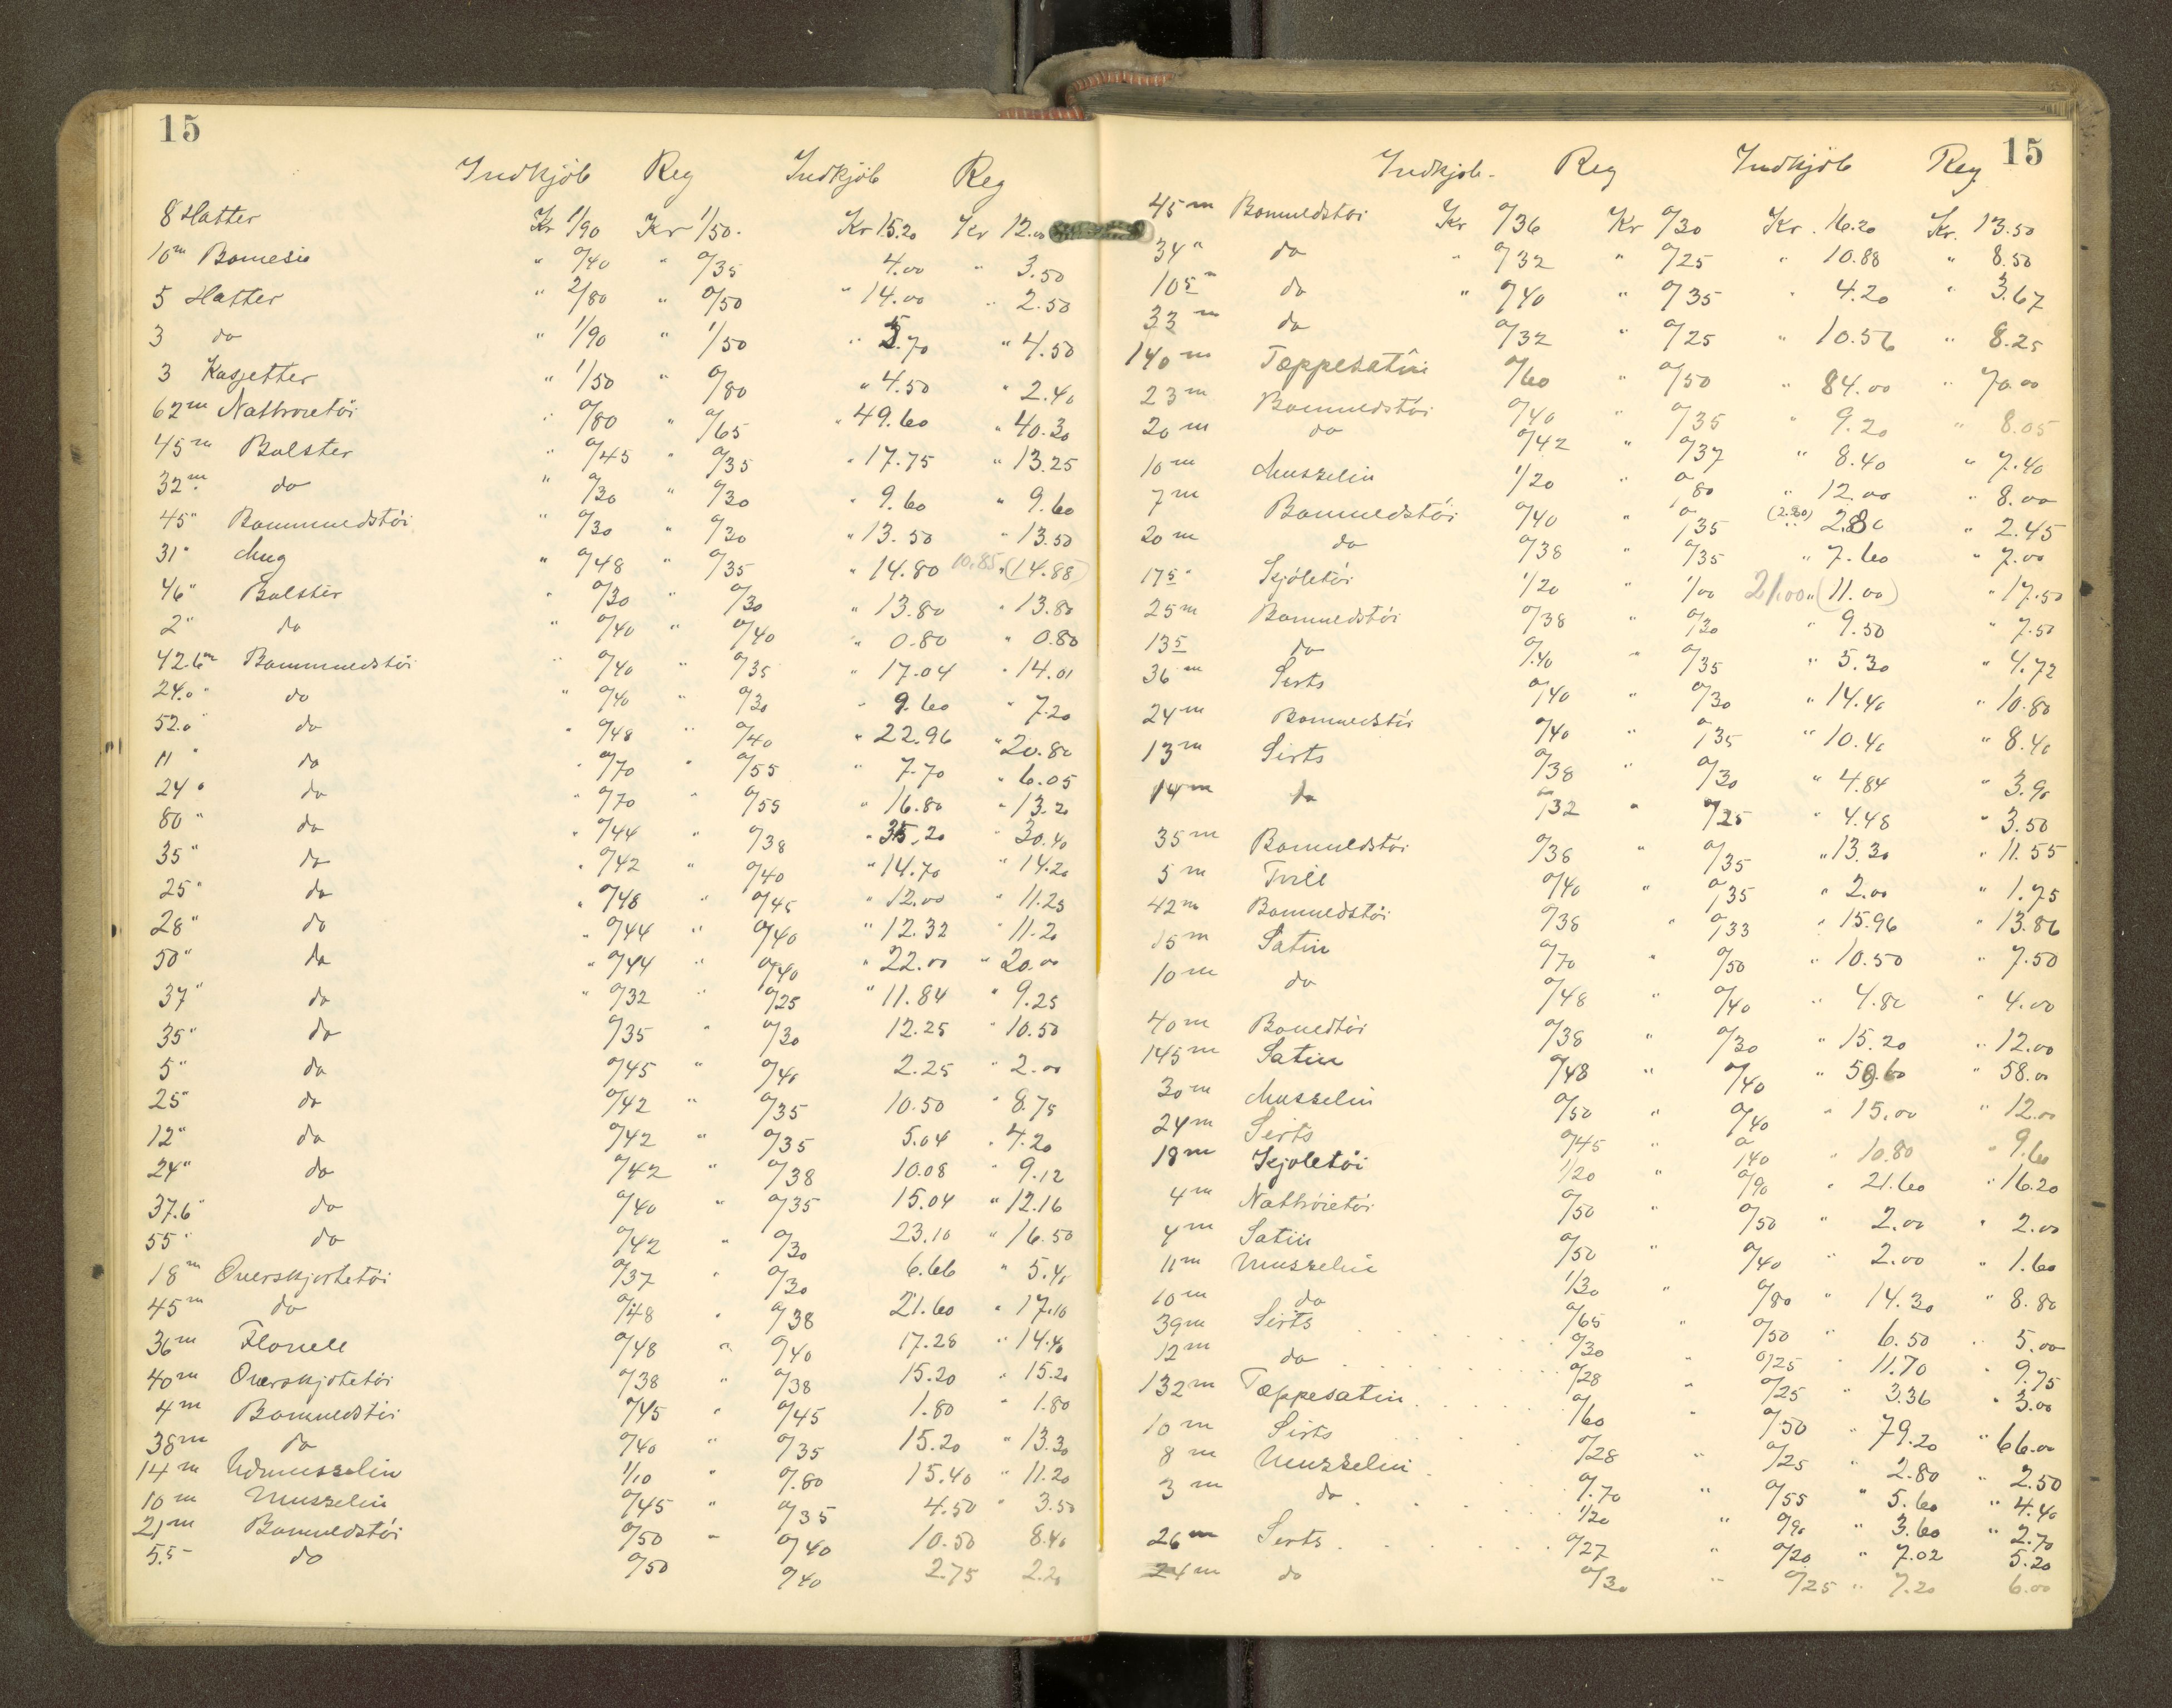 15
Indkjöb Reg Indkjöb Reg
8 Hatter Kr 1/90 Kr 1/50. Kr 15.20 Kr 12.00
10m Bomesie " 0/40 " 0/35 4.00 " 3.50
5 Hatter " 2/80 " 0/50 " 14.00 " 2.50
3 do " 1/90 " 1/50 " 5.70 " 4.50
3 Kasjetter " 1/50 " 0/80 " 4.50 " 2.40
62m Nattroietöi " 0/80 " 0/65 " 49.60 " 40.30
45m Bolster " 0/45 " 0/35 " 17.75 " 13.25
32m do " 0/30 " 0/30 " 9.60 " 9.60
45" Bommuldstöi " 0/30 " 0/30 " 13.50 " 13.50
31" " 0/48 " 0/35 " 14.80 10.85 " (14.88)
46" Bolster " 0/30 " 0/30 " 13.80 " 13.80
2" do " 0/40 " 0/40 " 0.80 " 0.80
42.6m Bommuldstöi " 0/40 " 0/35 " 17.04 " 14.01
24.0" do " 0/40 " 0/30 " 9.60 " 7.20
52.0" do " 0/48 " 0/40 " 22.96 " 20.80
11" do " 0/70 " 0/55 " 7.70 " 6.05
24" do " 0/70 " 0/55 " 16.80 " 13.20
80" do " 0/44 " 0/38 " 35.20 " 30.40
35" do " 0/42 " 0/40 " 14.70 " 14.20
25" do " 0/48 " 0/45 " 12.00 " 11.25
28" do " 0/44 " 0/40 " 12.32 " 11.20
50" do " 0/44 " 0/40 " 22.00 " 20.00
37" do " 0/32 " 0/25 " 11.84 " 9.25
35" do 0/35 " 0/30 12.25 " 10.50
5" do 0/45 " 0/40 2.25 " 2.00
25" do 0/42 " 0/35 10.50 " 8.75
12" do 0/42 " 0/35 5.04 " 4.20
24" do 0/42 " 0/38 10.08 " 9.12
37.6" do 0/40 " 0/35 15.04 " 12.16
55" do 0/42 " 0/30 23.10 " 16.50
18m Overskjortetöi 0/37 " 0/30 6.66 " 5.40
45m do 0/48 " 0/38 21.60 " 17.10
36m Flonell 0/48 " 0/40 17.28 " 14.40
40m Overskjotetöi 0/38 " 0/38 15.20 " 15.20
4m Bomuldstöi 0/45 " 0/45 1.80 " 1.80
38m do 0/40 " 0/35 15.20 " 13.30
14m Uldmusselin 1/10 " 0.80 15.40 " 11.20
10m Musselin 0/45 " 0/35 4.50 " 3.50
21m Bomuldstöi 0/50 " 0/40 10.50 8.40
5.5- do 0/50 0/40 2.75 2.20
15
Indkjöb- Reg Indkjöb Reg
45m Bomuldstöi Kr 0/36 Kr 0/30 Kr. 16.20 Kr. 13.50
34" do " 0/32 " 0/25 " 10.88 " 8.50
105" do " 0/40 " 0/35 " 4.20 " 3.67
33m do 0/32 " 0/25 " 10.56 " 8.25
140m Tæppesatin 0/60 " 0/50 " 84.00 " 70.00
23m Bomuldstöi 0/40 " 0/35 " 9.20 " 8.05
20m do 0/42 " 0/37 " 8.40 " 7.40
10m Musselin 1/20 " 0/80 " 12.00 " 8.00
7m Bomuldstöi 0/40 " 0/35 (2.80) 2.80 " 2.45
20m do 0/38 " 0/35 " 7.60 " 7.00
175" Kjoletöi 1/20 " 1/00 21.00 " (11.00) " 17.50
25m Bomuldstöi 0/38 " 0/30 " 9.50 " 7.50
135 do 0/40 " 0/35 " 5.30 " 4.72
36m Sirts 0/40 " 0/30 " 14.40 " 10.80
24m Bomuldstöi 0/40 " 0/35 " 10.40 " 8.40
13m Sirts 0/38 " 0/30 " 4.84 " 3.90
14m do 0/32 " 0/25 " 4.48 " 3.50
35m Bomuldstöi 0/38 " 0/35 " 13.30 " 11.55
5m Tvill 0/40 " 0/35 " 2.00 " 1.75
42m Bomuldstöi 0/38 " 0/33 " 15.96 " 13.86
15m Satin 0/70 " 0/50 " 10.50 " 7.50
10m do 0/48 " 0/40 " 4.80 " 4.00
40m Bomedtöi 0/38 " 0/30 " 15.20 " 12.00
145m Satin 0/48 " 0/40 " 50.60 " 58.00
30m Musselin 0/50 " 0/40 " 15.00 " 12.00
24m Sirts 0/45 " 0/40 " 10.80 " 9.60
18m Kjoletöi 1/20 " 0/90 " 21.60 " 16.20
4m Nattröietöi 0/50 " 0/50 " 2.00 " 2.00
4m Satin 0/50 " 0/40 " 2.00 " 1.60
11m Musselin 1/30 " 0/80 " 14.30 " 8.80
10m do 0/65 " 0/50 " 6.50 " 5.00
39m Sirts 0/30 " 0/25 " 11.70 " 9.75
12m do 0/28 " 0/25 " 3.36 " 3.00
132m Tæppesatin 0/60 " 0/50 " 79.20 " 66.00
10m Sirts 0/28 " 0/25 " 2.80 " 2.50
8m Musselin 0.70 " 0/55 " 5.60 " 4.40
3m do 1/20 " 0/90 " 3.60 " 2.70
26m Sirts 0/27 " 0/20 " 7.02 5.20
24m do 0/30 " 0/25 " 7.20 6.00